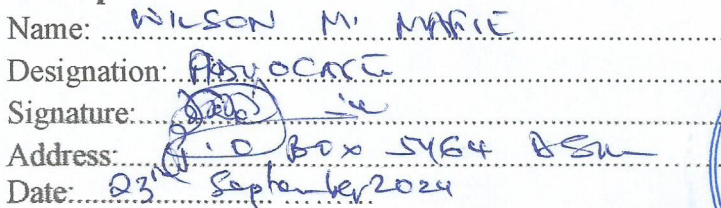 Name: WILSON M. MAFIE
Designation: ADVOCATE
Signature:
Address: P.O BOX 5464 DSM
Date: 23rd September 2024